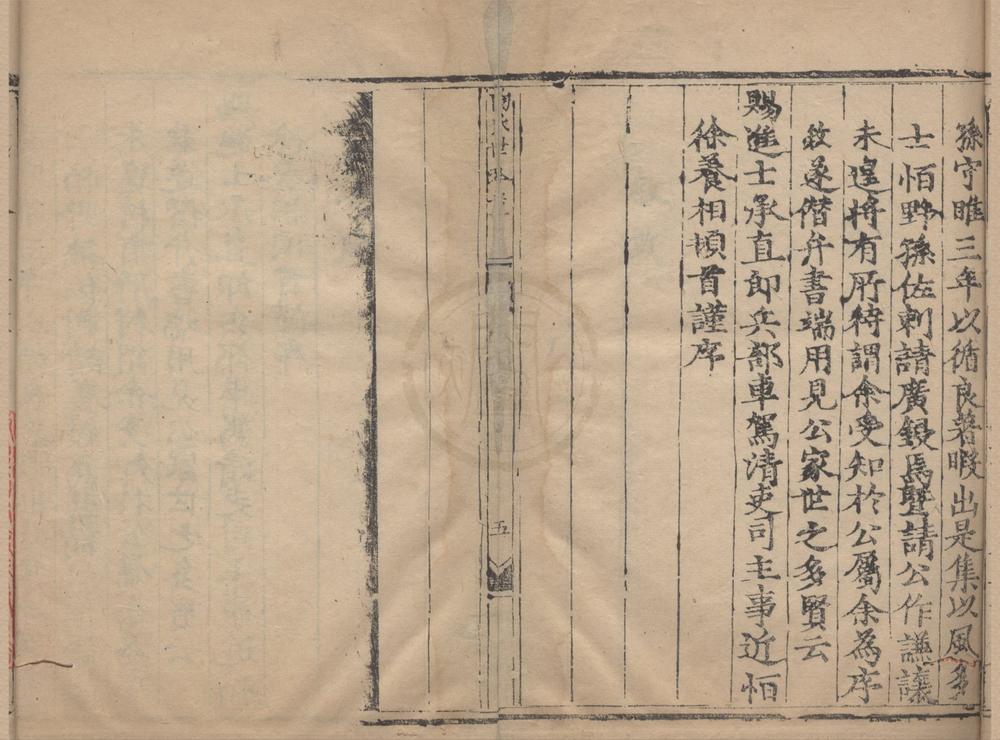 孫守睢三年以循良著暇出是集以風多
士怕野孫佐刺請廣鋟焉暨請公作謙讓
未遑將有所待謂余受知於公屬余為序
敘遂僭弁書端用見公家世之多賢云
賜進士承直郎兵部車駕清吏司主事近怕
徐養相頓首謹序
五